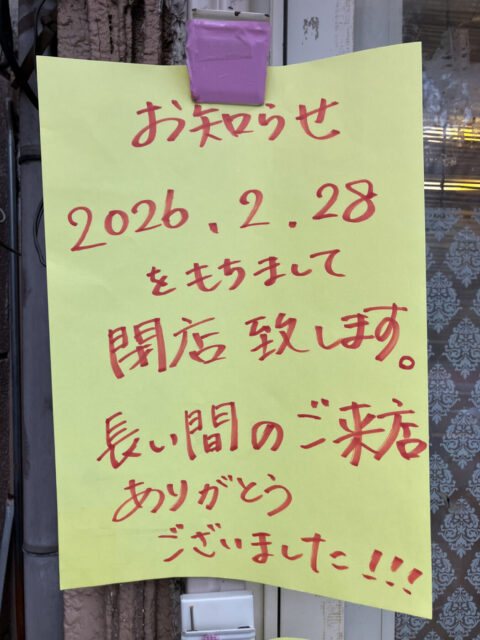 お知らせ
2026.2.28
をもちまして
閉店致します。
長い間のご来店
ありがとう
ございました!!!